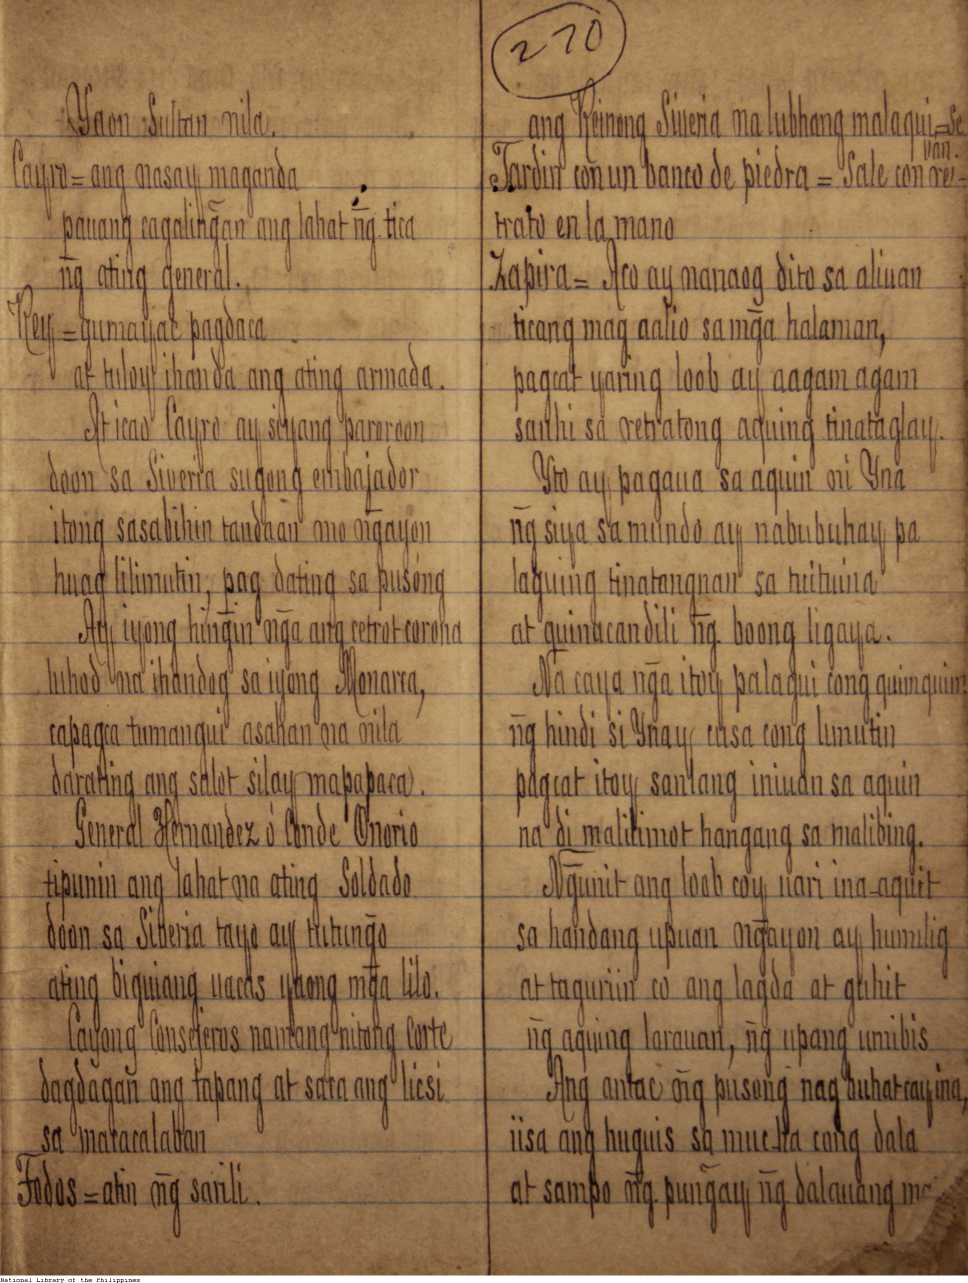 Yaon Sultan nila.
Cayro = ang nasay maganda
pauang cagalingan ang lahat n̄g tica
n̄g ating general.
Rey = gumayac pagdaca
at tuloy ihanda ang ating armada.
At icao Cayro ay siyang paroroon
doon sa Siverra sugong embajador
itong sasabihin tandaan mo n̄gayon
huag lilimutin, pag dating sa pusong
Ay iyong hin̄gin n̄ga ang cetrot corona
luhod na ihandog sa iyong Monarca,
capagca tumangui asahan na nila
darating ang salot silay mapapaca.
General Hernandez ó Conde Onorio
tipunin ang lahat na ating Soldado
doon sa Siberia tayo ay tutun̄go
ating biguiang uacas yaong mga lilo.
Cayong Consejeros nantang nitong corte
dagdagan ang tapang at saca ang licsi
sa macacalaban
Todos = atin n̄g sarili.
270
ang Reinong Siveria na lubhang malaqui = se
van.
Jardin con un banco de piedra = Sale con re-
trato en la mano
Zapira = Aco ay nanaog dito sa aliuan
ticang mag aalio sa mḡa halaman,
pagcat yaring loob ay aagam agam
sanhi sa retratong aquing tinataglay.
Yto ay pagaua sa aquin ni Yna
n̄g siya sa mundo ay nabubuhay pa
laguing tinatangnan sa tuituina
at quinacandili n̄g boong ligaya.
Na caya n̄ga itoy palagui cong quimquim
n̄g hindi si Ynay cusa cong limutin
pagcat itoy sanlang iniuan sa aquin
na di malilimot hangang sa malibing.
N̄gunit ang loob coy uari ina-aquit
sa handang upuan n̄gayon ay humilig
at taguriin co ang lagda at guhit
n̄g aquing larauan, n̄g upang umibis
Ang antac n̄g pusong nag duhat cay ina,
iisa ang huguis sa muc-ha cong dala
at sampo n̄g pun̄gay n̄g dalauang